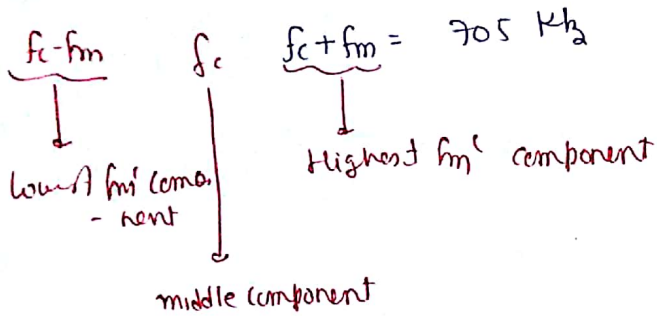 fc-fm fc fc+fm = 705 KHz
Highest fm' component
Lowest fm' compo
- nent
middle component